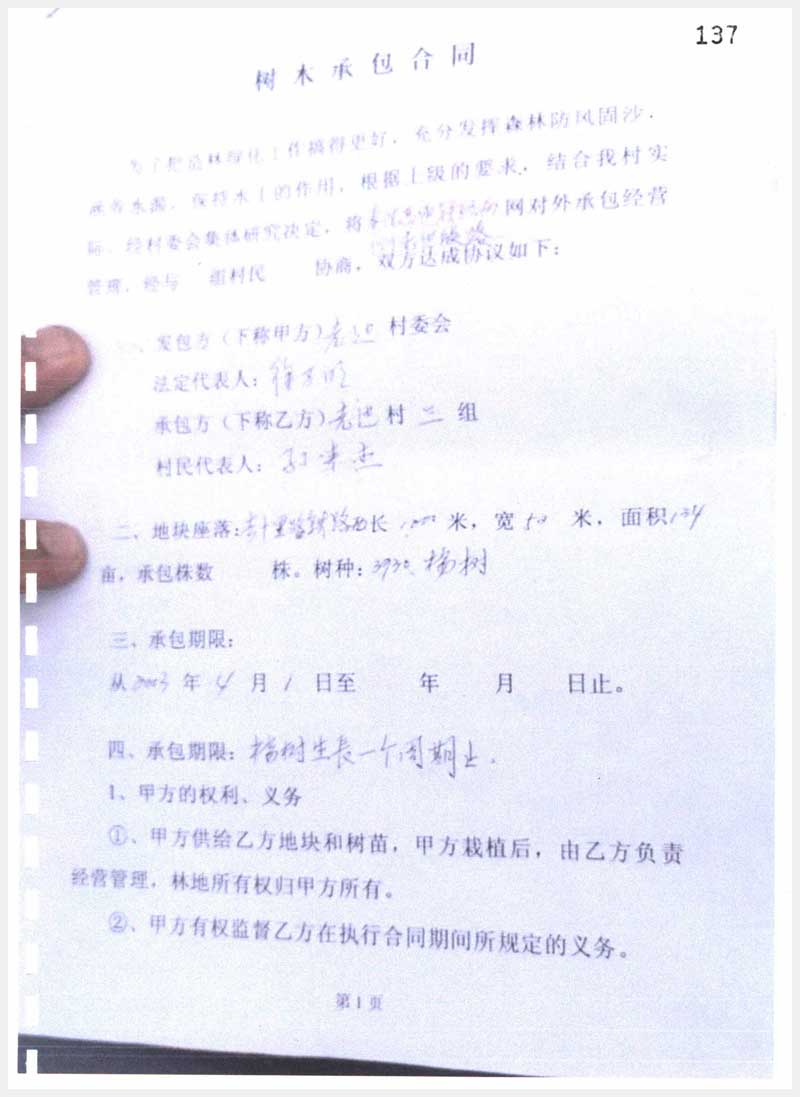 137
树木承包合同
为了把造林绿化工作搞得更好，充分发挥森林防风固沙，
涵养水源，保持水土的作用，根据上级的要求，结合我村实
际，经村委会集体研究决定，将 网对外承包经营
管理，经与 组村民 协商，双方达成协议如下：
、发包方（下称甲方） 村委会
法定代表人：
承包方（下称乙方） 村 三 组
村民代表人：
二、地块座落： 长 米，宽 50 米，面积134
亩，承包株数 株。树种：3930 杨树
三、承包期限：
从2003 年 4 月 1 日至 年 月 日止。
四、承包期限：杨树生长一个周期止.
1、甲方的权利、义务
①、甲方供给乙方地块和树苗，甲方栽植后，由乙方负责
经营管理，林地所有权归甲方所有。
②、甲方有权监督乙方在执行合同期间所规定的义务。
第1页